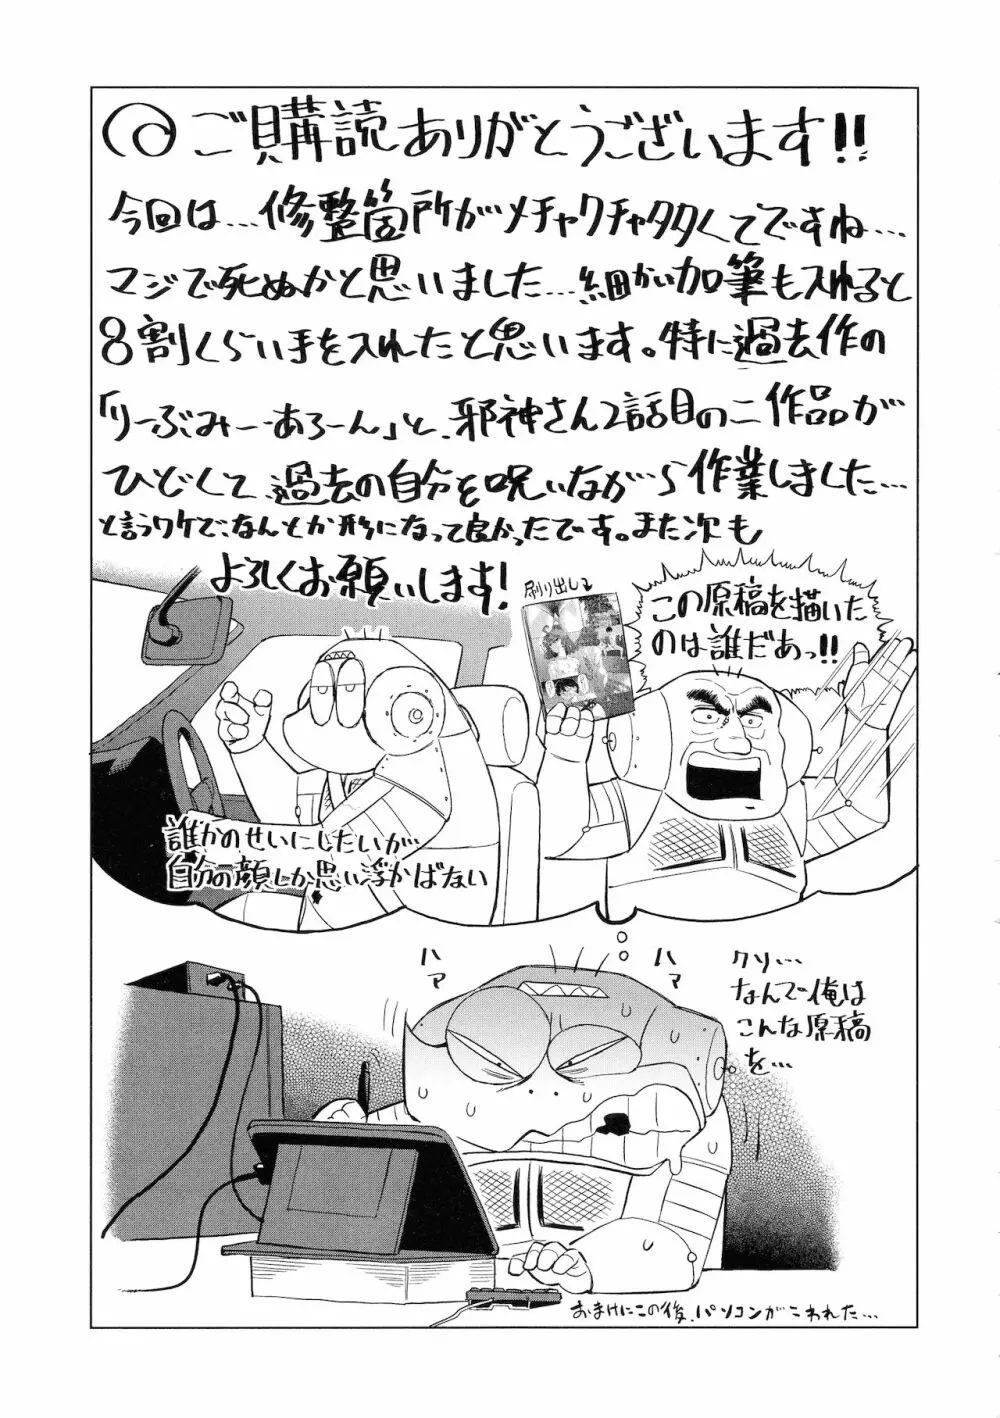 ご購読ありがとうございます!!
今回は…修整箇所がメチャクチャ多くてですね…
マジで死ぬかと思いました…細かい加筆も入れると
8割くらい手を入れたと思います。特に過去作の
「りーぶみー・あろーん」と、邪神さん2話目の二作品が
ひどくて、過去の自分を呪いながら作業しました…
と言うワケで、なんとか形になって良かったです。また次も
よろしくお願いします!
刷り出し
この原稿を描いた
のは誰だあっ!!
誰かのせいにしたいが
自分の顔しか思い浮かばない
ハァ
ハァ
クソ…
なんで俺は
こんな原稿
を…
おまけにこの後、パソコンがこわれた…